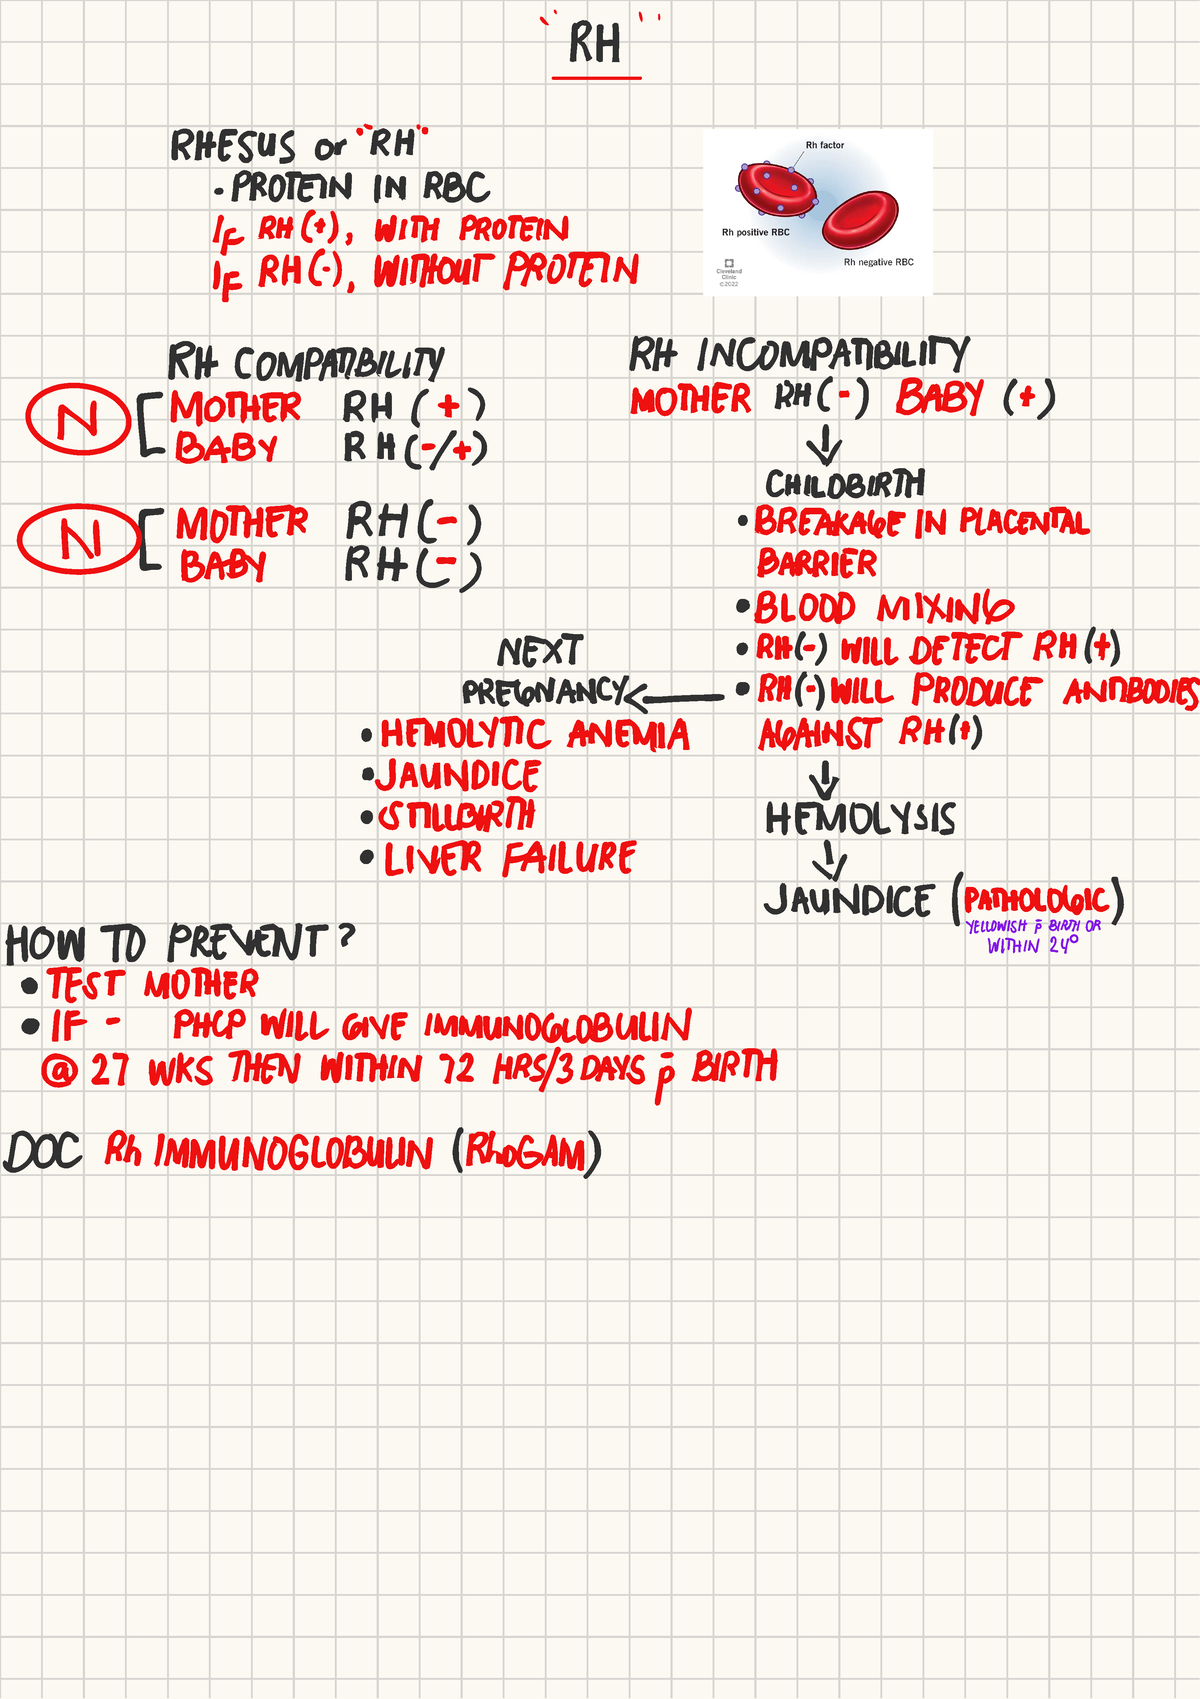 "RH"
RHESUS or "RH"
• PROTEIN IN RBC
IF RH (+), WITH PROTEIN
IF RH (-), WITHOUT PROTEIN
Rh factor
Rh positive RBC
Rh negative RBC
Cleveland
Clinic
©2022
RH COMPATIBILITY
N
MOTHER RH (+)
BABY RH (-/+)
N
MOTHER RH (-)
BABY RH (-)
RH INCOMPATIBILITY
MOTHER RH (-) BABY (+)
↓
CHILDBIRTH
• BREAKAGE IN PLACENTAL
BARRIER
• BLOOD MIXING
• RH(-) WILL DETECT RH (+)
• RH(-) WILL PRODUCE ANTIBODIES
AGAINST RH(+)
↓
HEMOLYSIS
↓
JAUNDICE (PATHOLOGIC)
YELLOWISH p̄ BIRTH OR
WITHIN 24°
NEXT
PREGNANCY ←
• HEMOLYTIC ANEMIA
• JAUNDICE
• STILLBIRTH
• LIVER FAILURE
HOW TO PREVENT?
• TEST MOTHER
• IF - PHCP WILL GIVE IMMUNOGLOBULIN
@ 27 WKS THEN WITHIN 72 HRS/3 DAYS p̄ BIRTH
DOC Rh IMMUNOGLOBULIN (RhoGAM)